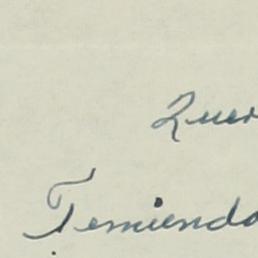 Quer
Temiendo